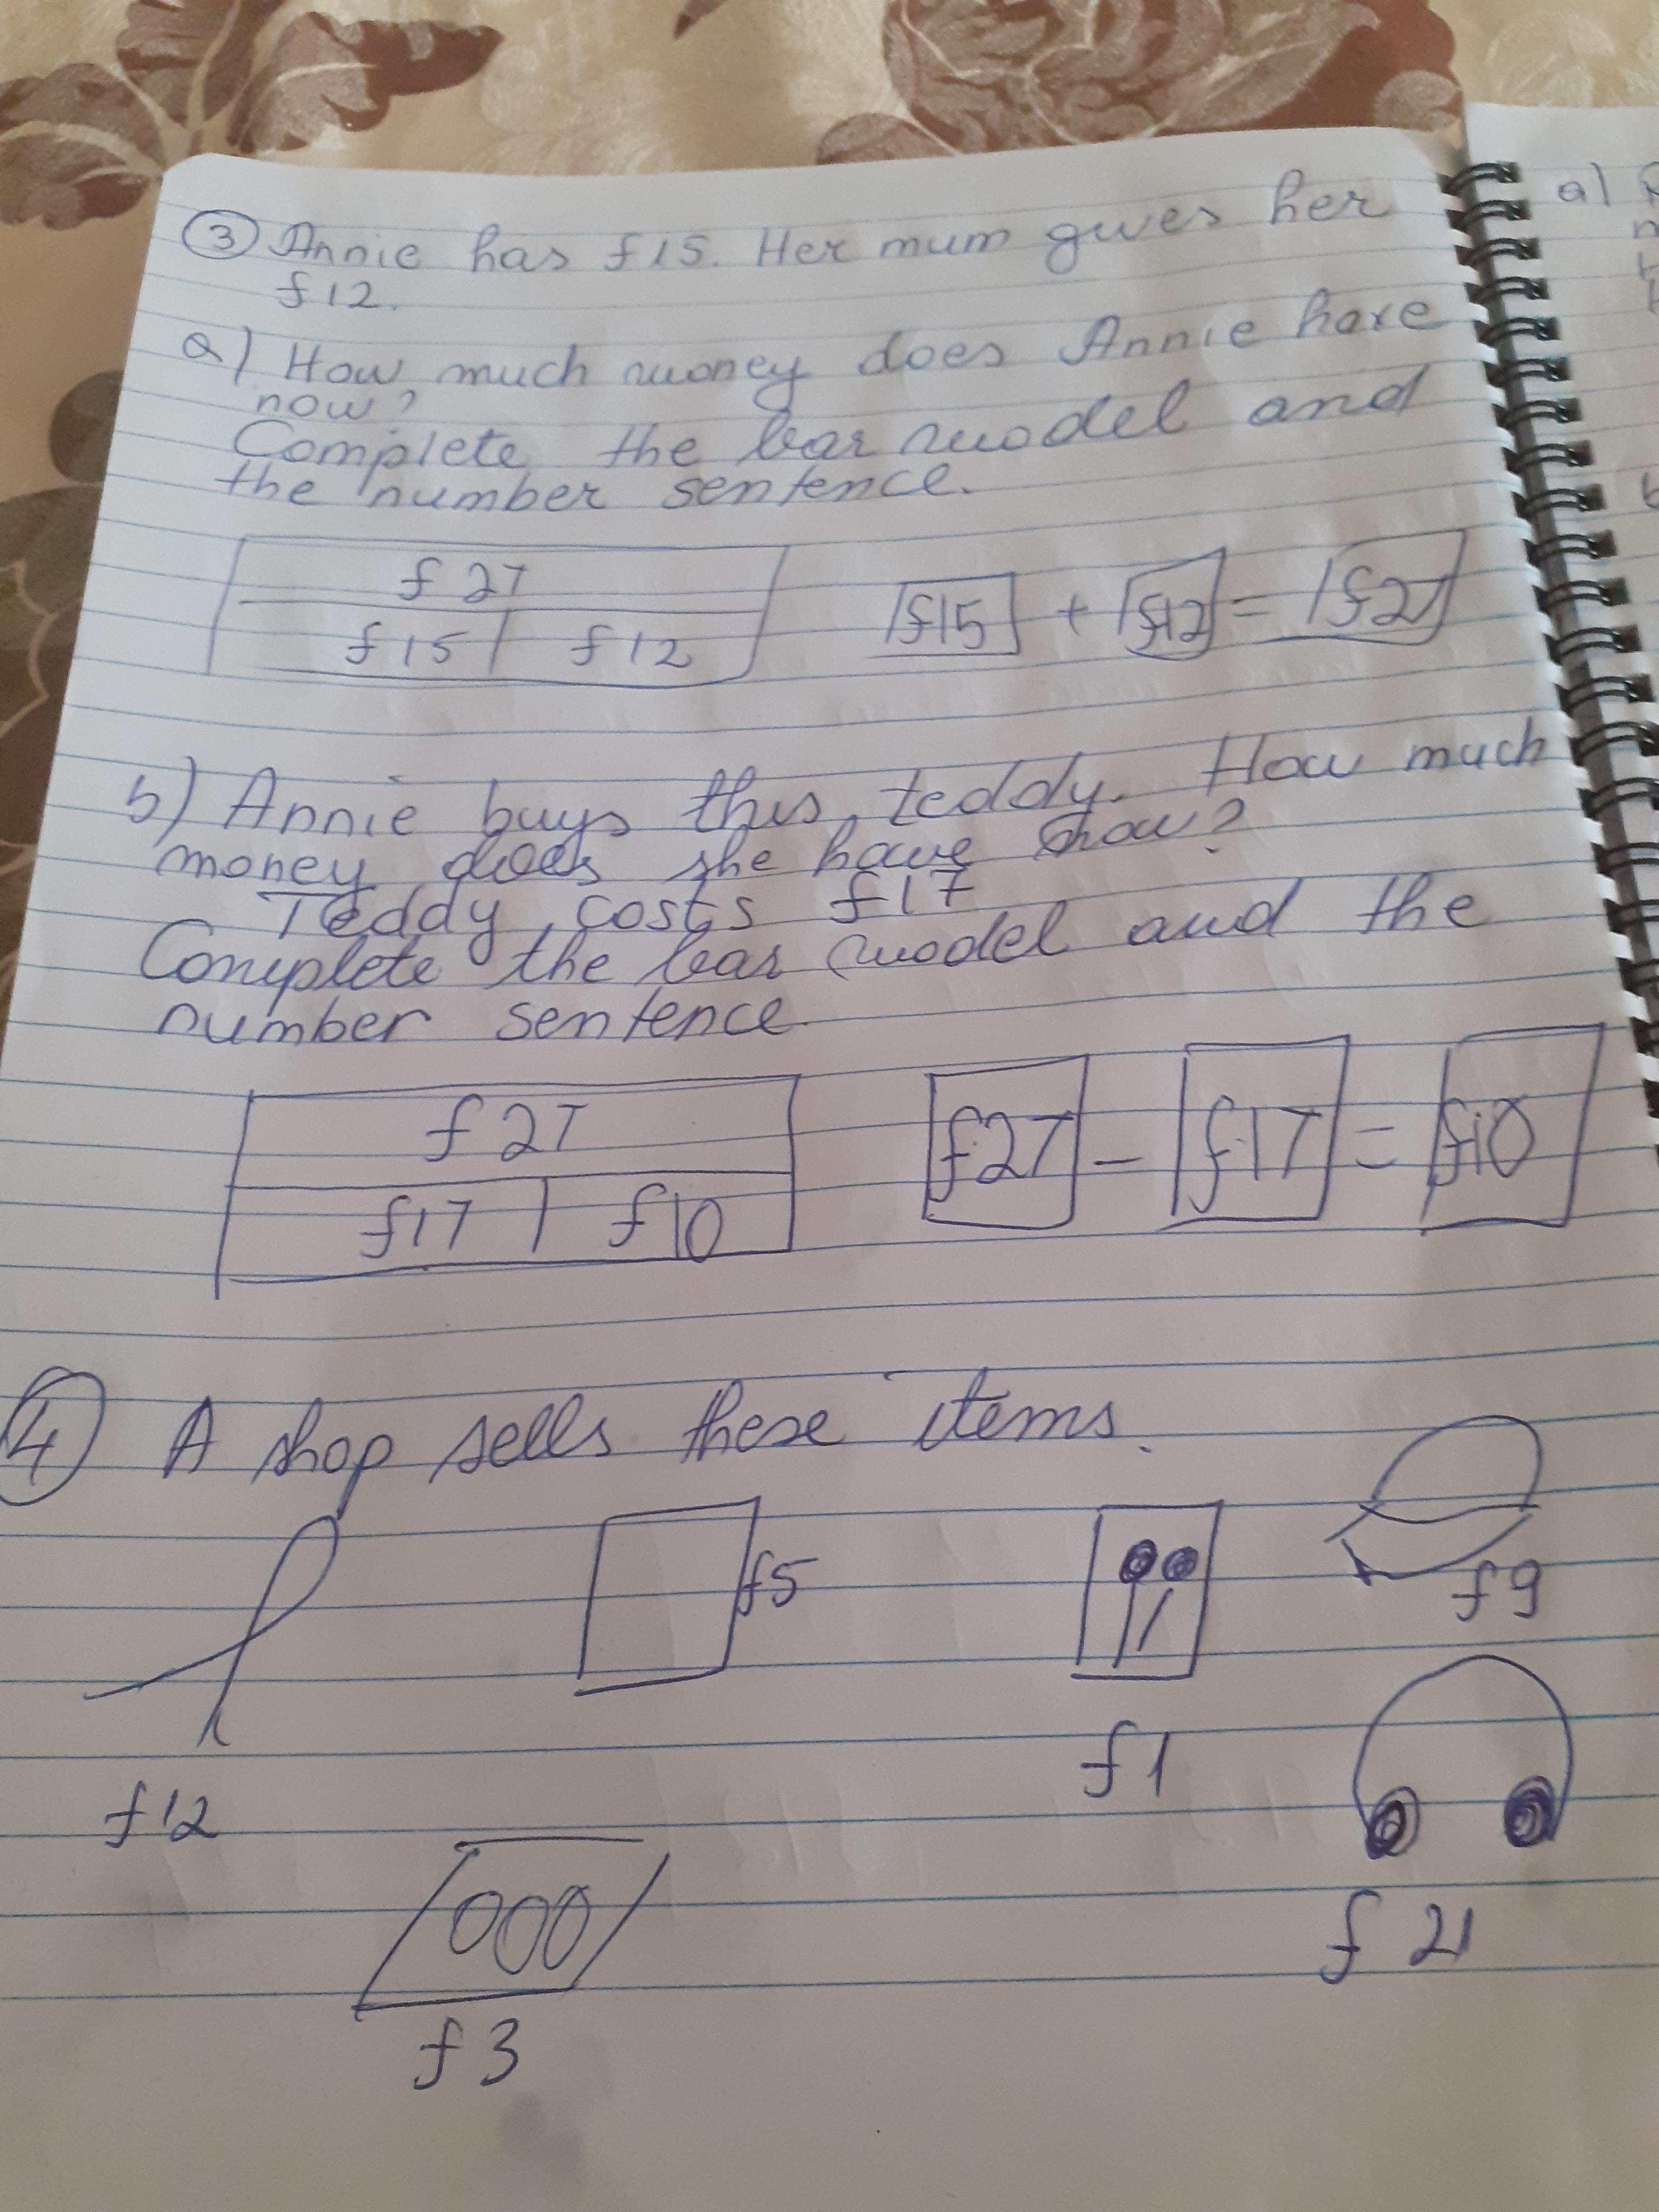 ③ Annie has £15. Her mum gives her
£12.
a) How much money does Annie have
now?
Complete the bar model and
the number sentence.
£27
£15 | £12
£15 + £12 = £27
b) Annie buys this teddy. How much
money does she have now?
Teddy costs £17
Complete the bar model and the
number sentence.
£27
£17 | £10
£27 - £17 = £10
④ A shop sells these items.
£5
£9
£1
£12
£21
£3
a)